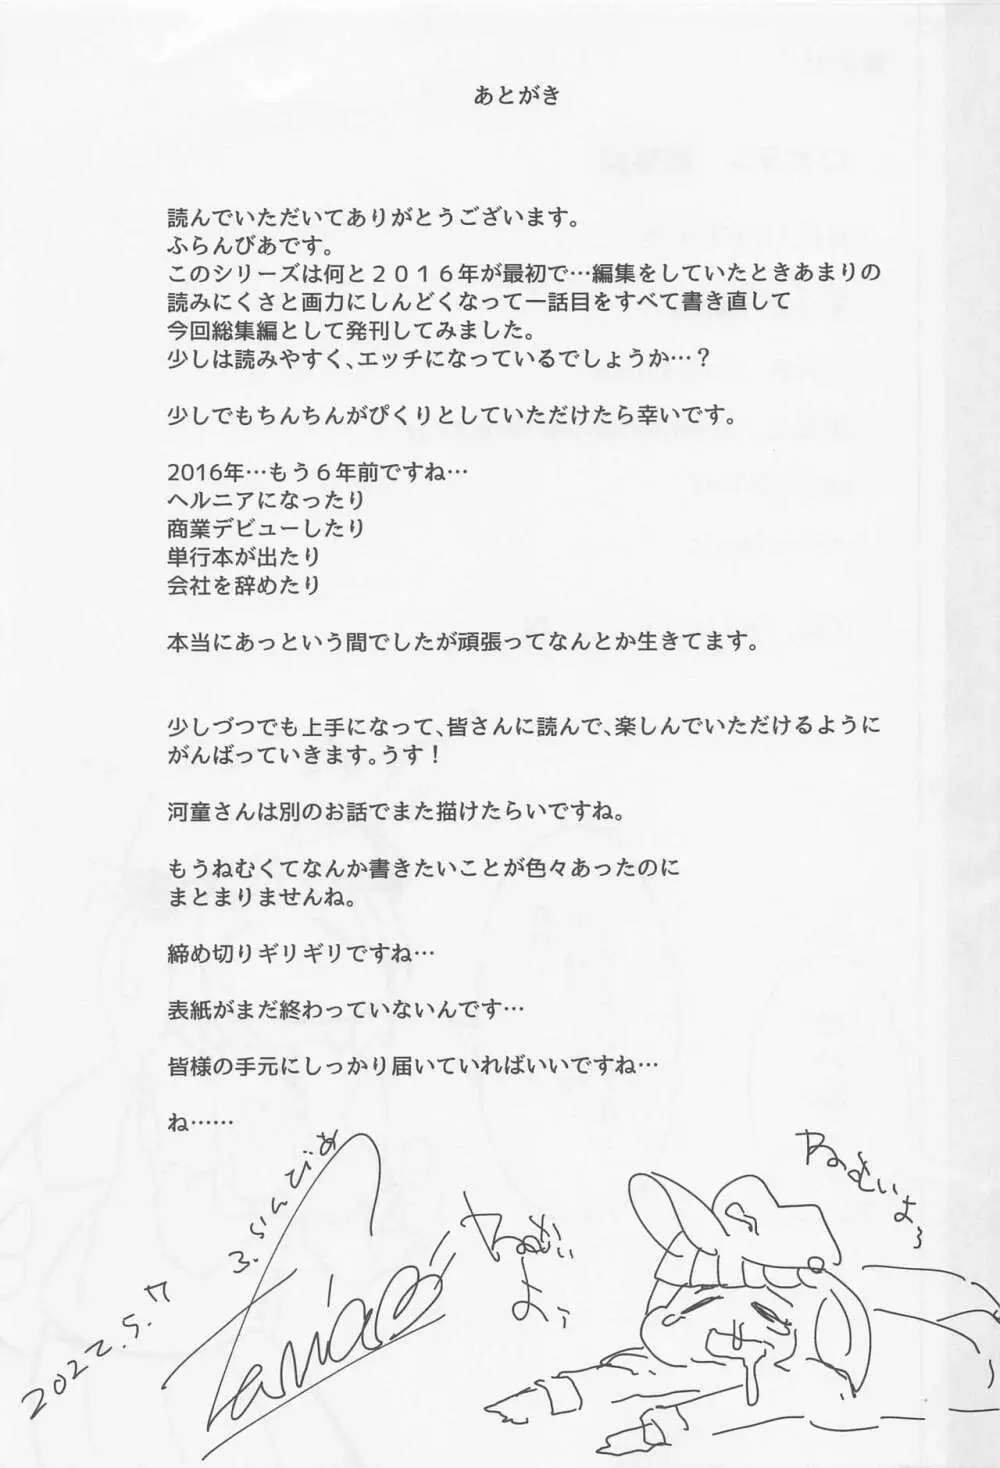 あとがき
読んでいただいてありがとうございます。
ふらんびあです。
このシリーズは何と２０１６年が最初で…編集をしていたときあまりの
読みにくさと画力にしんどくなって一話目をすべて書き直して
今回総集編として発刊してみました。
少しは読みやすく、エッチになっているでしょうか…？
少しでもちんちんがぴくりとしていただけたら幸いです。
2016年…もう６年前ですね…
ヘルニアになったり
商業デビューしたり
単行本が出たり
会社を辞めたり
本当にあっという間でしたが頑張ってなんとか生きてます。
少しづつでも上手になって、皆さんに読んで、楽しんでいただけるように
がんばっていきます。うす！
河童さんは別のお話でまた描けたらいですね。
もうねむくてなんか書きたいことが色々あったのに
まとまりませんね。
締め切りギリギリですね…
表紙がまだ終わっていないんです…
皆様の手元にしっかり届いていればいいですね…
ね……
2022.5.17
ねむい
よぅ
ねむいよぅ